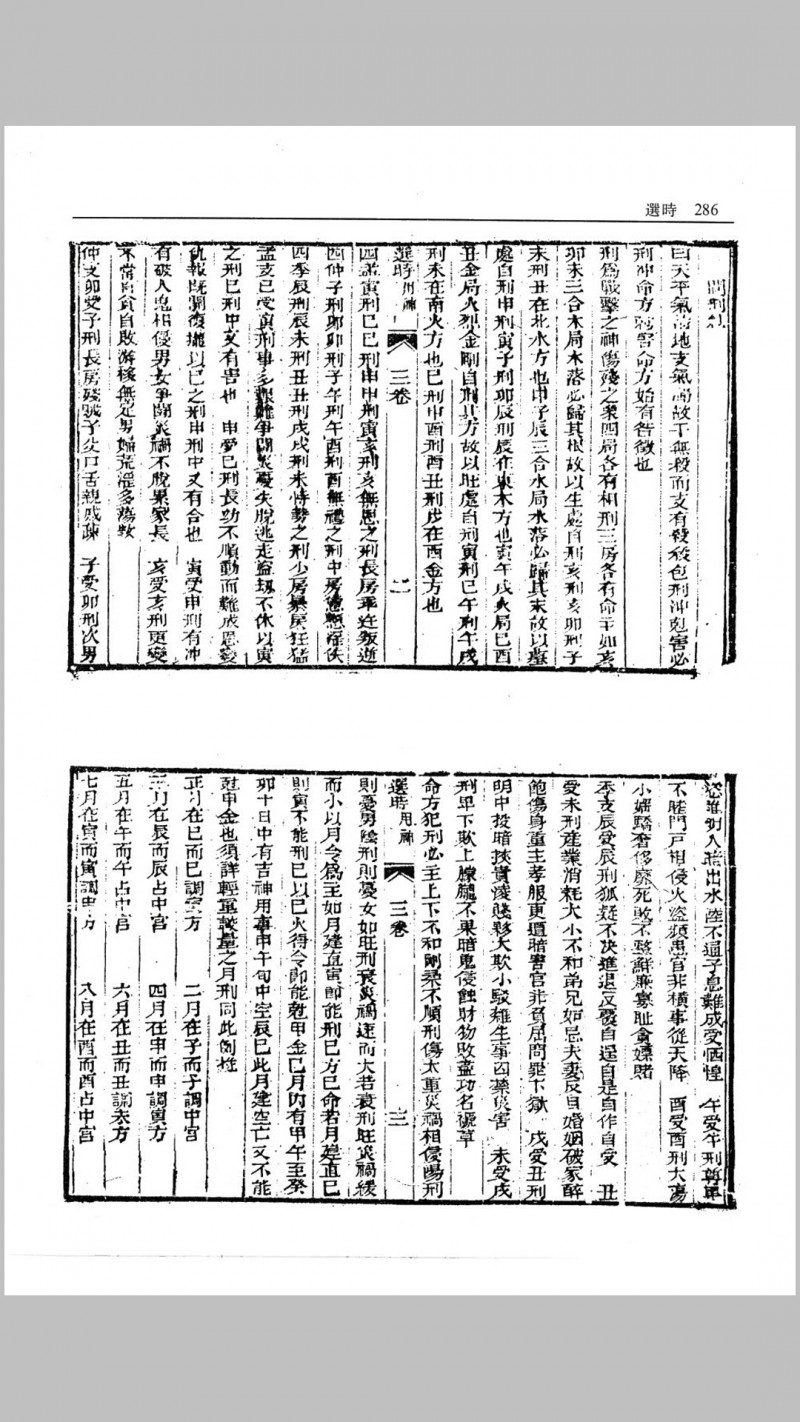 選時 286
曰天干氣高地支氣高故干無殺而支有殺殺包刑冲剋害必
刑冲命方剋害命方始有咎徵也
刑爲戰擊之神傷殘之衆四局各有相刑三房各有命主如亥
卯未三合木局木落必歸其根故以生處自刑亥刑亥卯刑子
未刑丑在北水方也申子辰三合水局水落必歸其末故以墓
處自刑申刑寅子刑卯辰刑辰在東木方也寅午戌火局巳酉
丑金局火烈金剛自刑其方故以旺處自刑寅刑巳午刑午戌
刑未在南火方也巳刑申酉刑酉丑刑戌在西金方也
選時用神 三卷 二
四孟寅刑巳巳刑申申刑寅亥刑亥無恩之刑長房乖迕叛逆
四仲子刑卯卯刑子午刑午酉刑酉無禮之刑中房 淫佚
四季辰刑辰未刑丑丑刑戌戌刑未恃勢之刑少房暴戾狂猛
孟支巳受寅刑事多艱難爭鬪災憂失脫逃走盜刼不休以寅
之刑巳刑中又有害也 申受巳刑長幼不順動而難成恩變
仇報既關復 以巳之刑申刑中又有合也 寅受申刑有冲
有破人鬼相侵男女爭鬪災禍不脫累家長 亥受亥刑更變
不常自貧自敗游移無定男婦荒淫多蕩敎
仲支卯受子刑長房殘號子父口舌親戚疎 子受卯刑次男
人 出水陸不通子息難成受恓惶 午受午刑尊卑
不睦門戶相侵火盜頻患官非橫事從天降 酉受酉刑大蕩
小婦驕奢侈靡死敗不整鮮廉寡耻貪嫖賭
季支辰受辰刑狐疑不决進退反覆自逞自是自作自受 丑
受未刑產業消耗大小不和弟兄如忌夫妻反目婚姻破家醉
飽傷身重主孝服更遭暗害官非負屈問罪下獄 戌受丑刑
明中投暗挾貴淩賤夥大欺小駁雜生事囚禁災害 未受戌
刑卑下欺上朦朧不果暗鬼侵蝕財物敗盡功名褫草
命方犯刑必主上下不和剛柔不順刑傷太重災禍相侵陽刑
選時用神 三卷 三
則憂男陰刑則憂女如旺刑衰災禍速而大若衰刑旺災禍緩
而小以月令爲主如月建直寅卽能刑巳方巳命若月建直巳
則寅不能刑巳以巳火得令卽能尅申金巳月內有甲午至癸
卯十日中有吉神用事甲午旬中空辰巳此月建空亡又不能
尅申金也須詳輕重較量之月刑同此例推
正月在巳而巳調亥方 二月在子而子調中宮
三月在辰而辰占中宮 四月在申而申調寅方
五月在午而午占中宮 六月在丑而丑調未方
七月在寅而寅調申方 八月在酉而酉占中宮